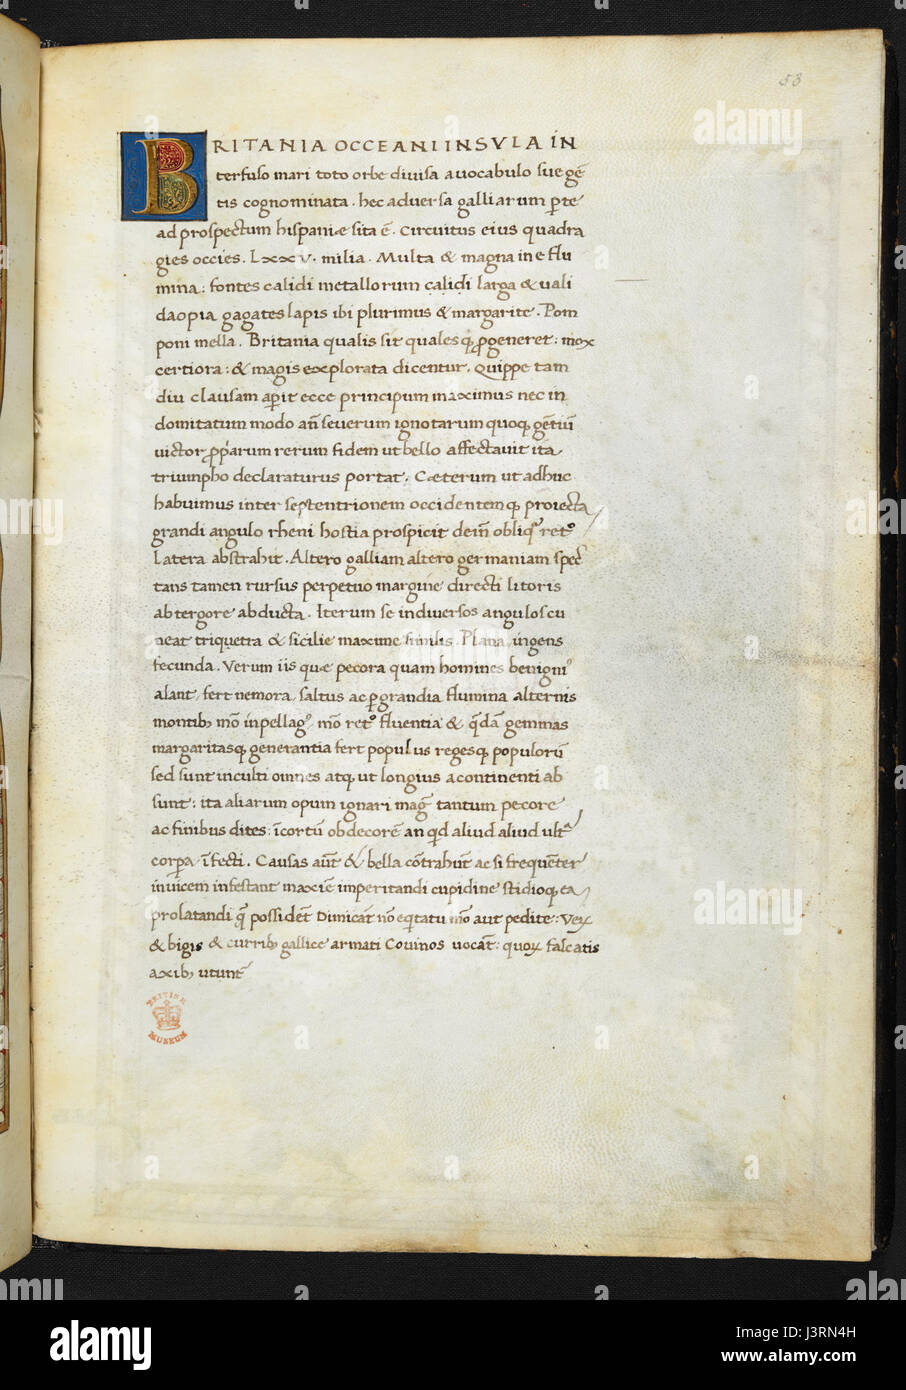 53
BRITANIA OCCEANI INSVLA IN
terfuso mari toto orbe diuisa a uocabulo sue gē
tis cognominata. hec aduersa galliarum ꝑte
ad prospectum hispaniæ sita ē. Circuitus eius quadra
gies occies. Lxxv. milia. Multa & magna in e flu
mina: fontes calidi metallorum calidi larga & uali
da opia gagates lapis ibi plurimus & margarite. Pom
poni mella. Britania qualis sit qualesqꝫ ꝓgeneret: mox
certiora: & magis explorata dicentur. Quippe tam
diu clausam aꝑit ecce principum maximus nec in
domitatum modo añ seuerum ignotarum quoqꝫ gētiū
uictor ꝓpꝛarum rerum fidem ut bello affectauit ita
triumpho declaraturus portat. Cæterum ut adhuc
habuimus inter septentrionem occidentemqꝫ proiecta
grandi angulo rheni hostia prospicit dein̄ obliqͣ retͦ
Latera abstrahit. Altero galliam altero germaniam spec̄
tans tamen rursus perpetuo margine directi litoris
ab tergore abducta. Iterum se in diuersos angulos cu
neat triquetra & sicilie maxime similis. Plana ingens
fecunda. Verum iis quæ pecora quam homines benigniꝰ
alant, fert nemora, saltus ac ꝑgrandia flumina alternis
montibꝫ mͦo in pellagꝰ mͦo retͦ fluentia & qͣdā gemmas
margaritasqꝫ generantia fert populus regesqꝫ populorū
sed sunt inculti omnes atqꝫ ut longius a continenti ab
sunt: ita aliarum opum ignari magͥ tantum pecore
ac finibus dites: īcortū ob decorē an qͥd aliud aliud ultͣ
corpa īfecti. Causas aūt & bella cōtrahūt ac si frequēter
inuicem infestant maxīe imperitandi cupidine stidioqꝫ ea
prolatandi qͣ possidēt Dimicāt nō eqͥtatu mͦo aut pedite: Veꝝ
& bigis & curribꝫ gallice armati Couinos uocāt: quoꝝ falcatis
axibꝫ utunt̄
BRITISH
MUSEUM
alamy
alamy
Image ID: J3RN4H
www.alamy.com